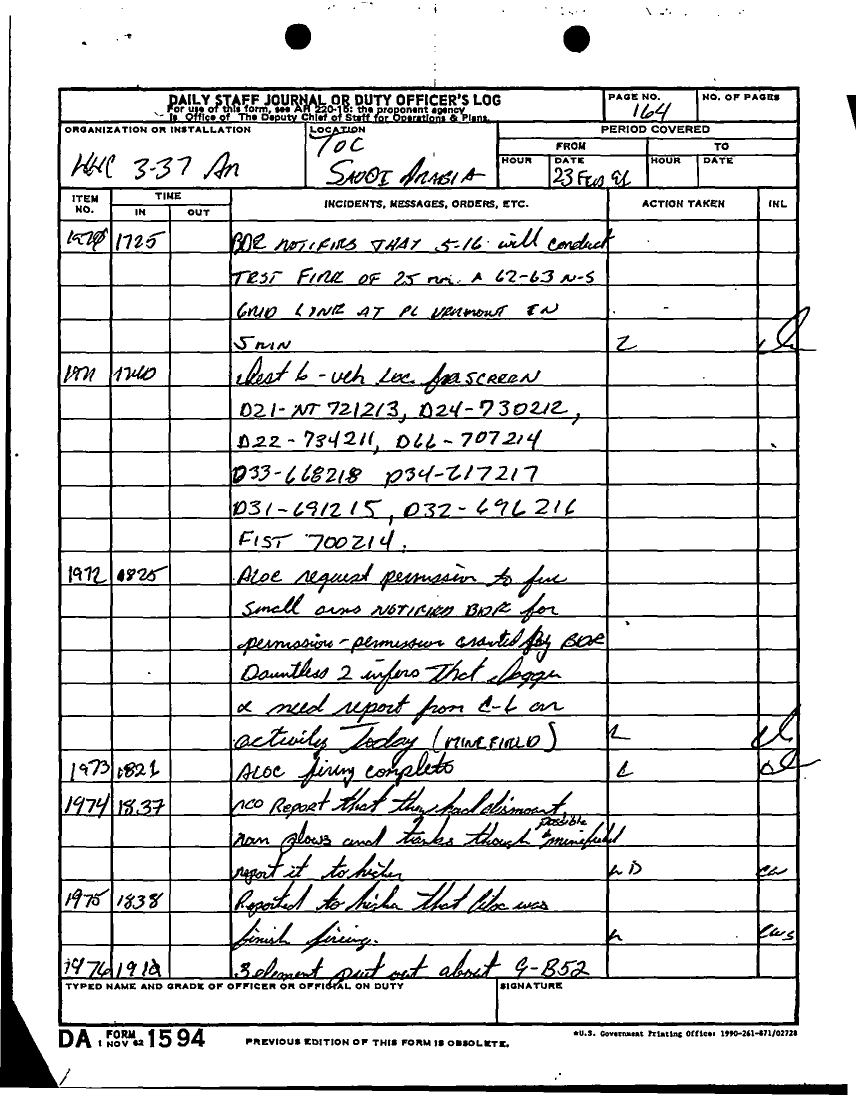 DAILY STAFF JOURNAL OR DUTY OFFICER'S LOG
For use of this form, see AR 220-15; the proponent agency
is Office of The Deputy Chief of Staff for Operations & Plans.
PAGE NO.
164
NO. OF PAGES
ORGANIZATION OR INSTALLATION
HHC 3-37 Ar
LOCATION
TOC
SAUDI ARABIA
PERIOD COVERED
FROM
TO
HOUR
DATE
23 Feb 91
HOUR
DATE
ITEM NO.
TIME
IN
OUT
INCIDENTS, MESSAGES, ORDERS, ETC.
ACTION TAKEN
INL
1970 1725 BDE NOTIFIES THAT 5-16 will conduct
TEST FIRE OF 25 mm. A 62-63 N-S
GRID LINE AT PL VERMONT IN
5 MIN
1971 1740 - veh Loc. for SCREEN
D21-NT 721213, D24-730212,
D22-734211, D66-707214
D33-668218 D34-617217
D31-691215, D32-696216
FIST 700214.
1972 1825 ALOC request permission to fire
Small arms NOTIFIED BDE for
permission - permission granted by BDE
Dauntless 2 infers that
need report from C-6 on
activity Today (MINEFIELD)
1973 1821 ALOC firing complete
1974 1837 NCO Report that they had dismount
plows and tanks though possible minefield
report it to higher
1975 1838 Reported to higher that Aloc was
finish firing.
1976 1910 3 element put out about G-B52
TYPED NAME AND GRADE OF OFFICER OR OFFICIAL ON DUTY
SIGNATURE
DA FORM 1 NOV 62 1594
PREVIOUS EDITION OF THIS FORM IS OBSOLETE.
*U.S. Government Printing Office: 1990-261-871/02728